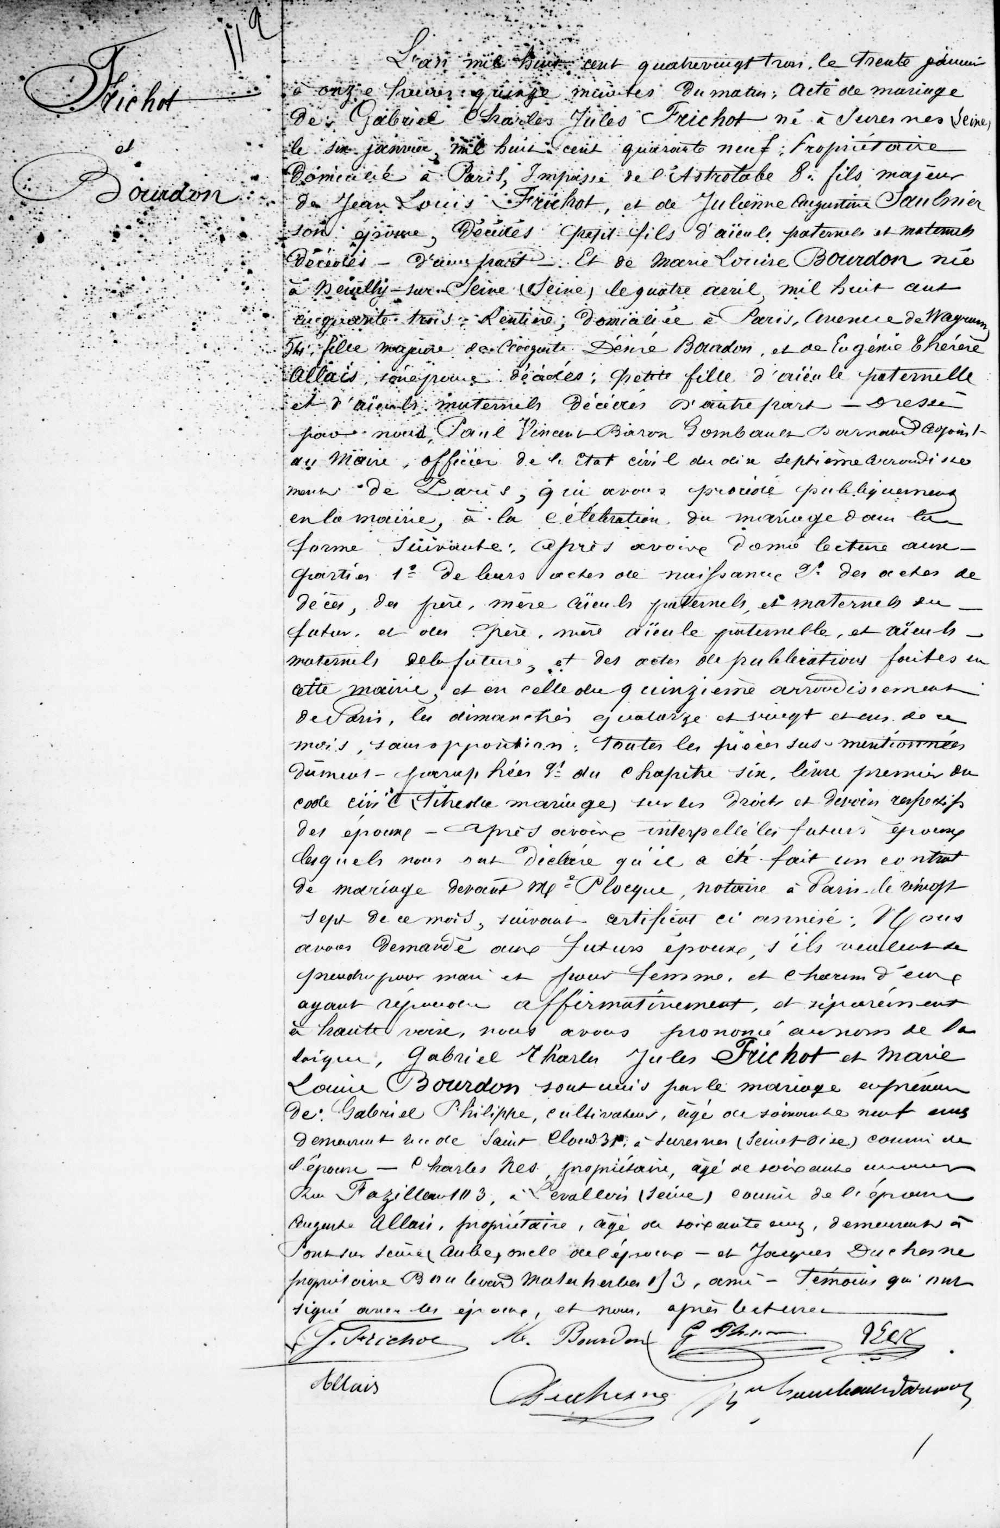 112
Frichot
et
Bourdon
L'an mil huit cent quatrevingt trois, le trente janvier
à onze heures quinze minutes du matin; acte de mariage
de: Gabriel Charles Jules Frichot né à Suresnes (Seine)
le six janvier, mil huit cent quarante neuf; Propriétaire
domicilié à Paris, Impasse de l'Astrolabe 8: fils majeur
de Jean Louis Frichot, et de Julienne Augustine Saulnier
son épouse, décédés petit fils d'aïeuls paternels et maternels
décédés – d'une part – Et de Marie Louise Bourdon née
à Neuilly-sur-Seine (Seine) le quatre avril, mil huit cent
cinquante trois: Rentière; domiciliée à Paris, Avenue de Wagram,
54; fille majeure de Auguste Désiré Bourdon, et de Eugénie Thérèse
Allais, son épouse décédés; petite fille d'aïeule paternelle
et d'aïeuls maternels décédés d'autre part – Dressé
par nous, Paul Vincent Baron Gombault Darnaud adjoint
au Maire, officier de l'Etat civil du dix septième arrondisse
ment de Paris, qui avons procédé publiquement
en la mairie, à la célébration du mariage dans la
forme suivante: après avoir donné lecture aux
parties 1º de leurs actes de naissance 2º des actes de
décès, des père, mère aïeuls paternels, et maternels du
futur, et des père, mère aïeule paternelle, et aïeuls
maternels de la future, et des actes de publications faites en
cette mairie, et en celle du quinzième arrondissement
de Paris, les dimanches quatorze et vingt et un de ce
mois, sans opposition; toutes les pièces sus-mentionnées
dûment paraphées 3º du chapitre six, livre premier du
code civil (titre du mariage) sur les droits et devoirs respectifs
des époux – Après avoir interpellé les futurs époux
lesquels nous ont déclaré qu'il a été fait un contrat
de mariage devant Me Plocque, notaire à Paris le vingt
sept de ce mois, suivant certificat ci annexé; Nous
avons demandé aux futurs époux, s'ils veulent se
prendre pour mari et pour femme, et chacun d'eux
ayant répondu affirmativement, et séparément
à haute voix, nous avons prononcé au nom de la
loi que, Gabriel Charles Jules Frichot et Marie
Louise Bourdon sont unis par le mariage en présence
de: Gabriel Philippe, cultivateur, âgé de soixante neuf ans
demeurant rue de Saint Cloud 31, à Suresnes (Seine et Oise) cousin de
l'époux – Charles Nes, propriétaire, âgé de soixante
Rue Fazilleau 103, à Levallois (Seine) cousin de l'épouse
Auguste Allais, propriétaire, âgé de soixante ans, demeurant à
Pont sur Seine (Aube) oncle de l'épouse – et Jacques Duchesne
propriétaire Boulevard Malesherbes 153, ami – Témoins qui ont
signé avec les époux, et nous, après lecture
J. Frichot M. Bourdon G
Allais Duchesne Bon Gombault Darnaud